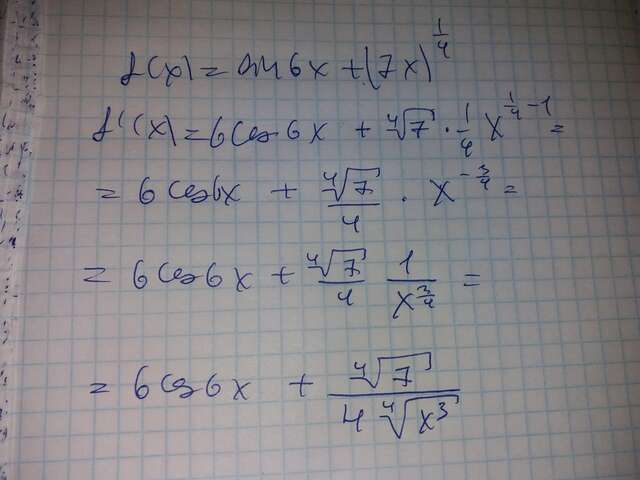 f(x) = sin 6x + (7x)^{1/4}
f'(x) = 6 cos 6x + ∜7 · 1/4 x^{1/4 - 1} =
= 6 cos 6x + ∜7/4 · x^{-3/4} =
= 6 cos 6x + ∜7/4 1/x^{3/4} =
= 6 cos 6x + ∜7/(4 ∜x³)